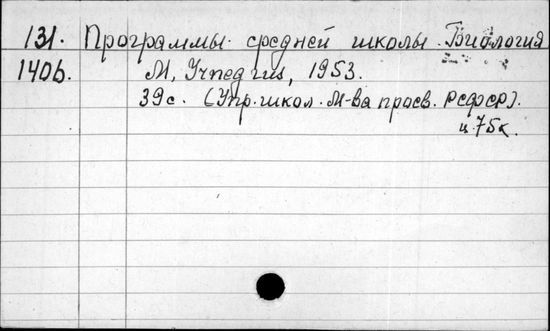 131. Программы средней школы. Биология
1406. М, Учпедгиз, 1953.
39с. (Упр. школ. М-ва просв. РСФСР).
ц. 75к.